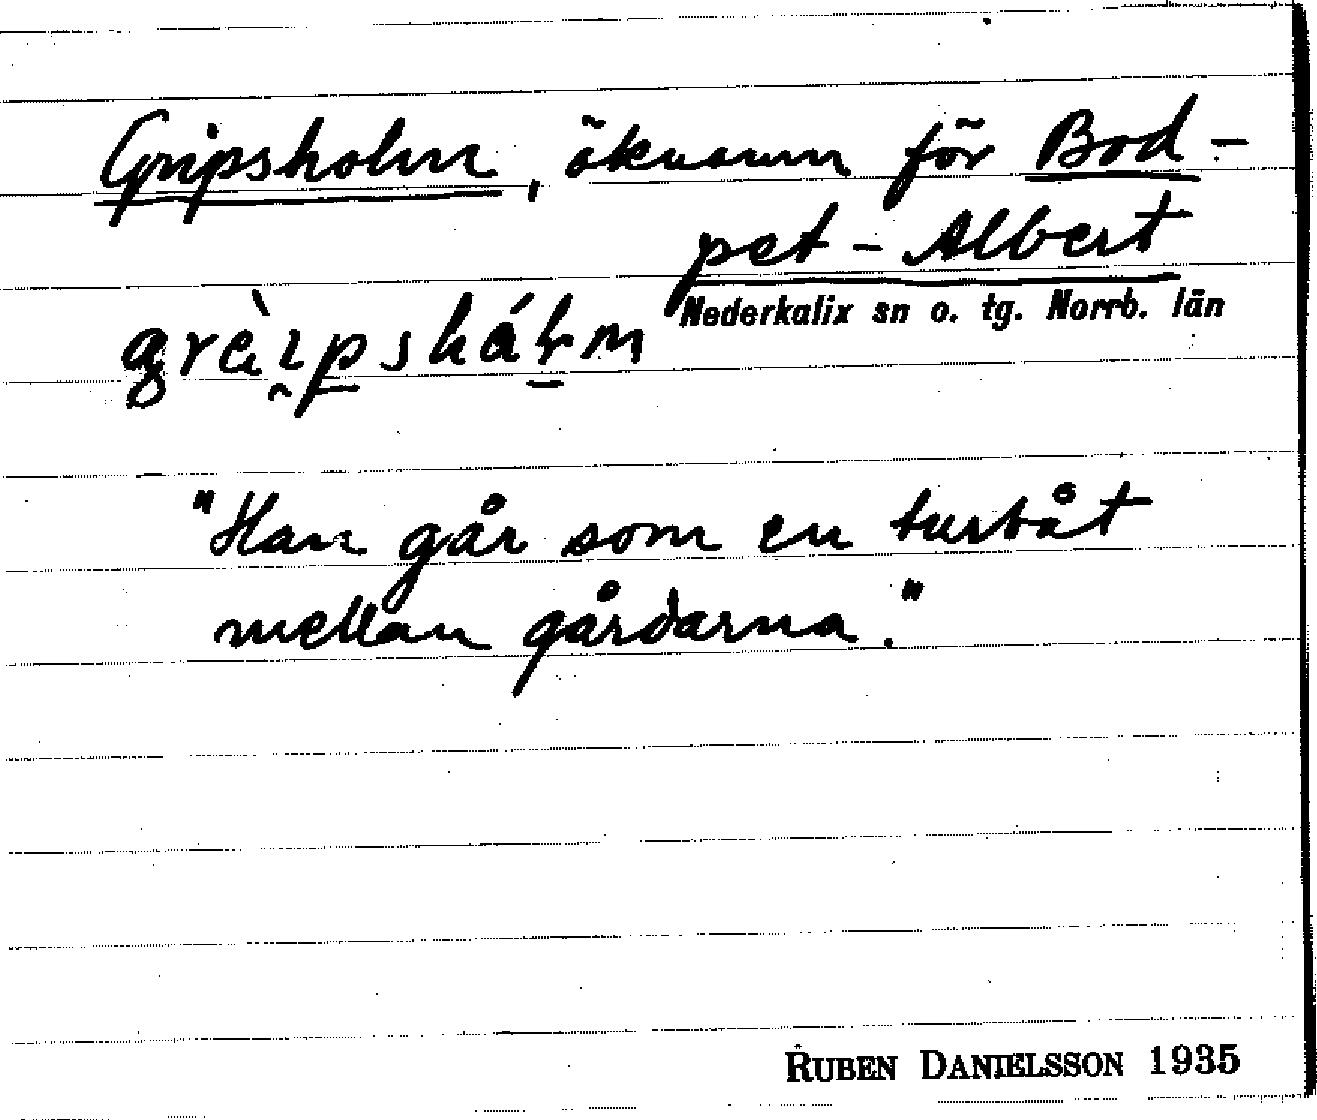 Gripsholm, öknamn för Bod-
pet-Albert
Nederkalix sn o. tg. Norrb. län
"Han går som en turbåt
mellan gårdarna."
RUBEN DANIELSSON 1935